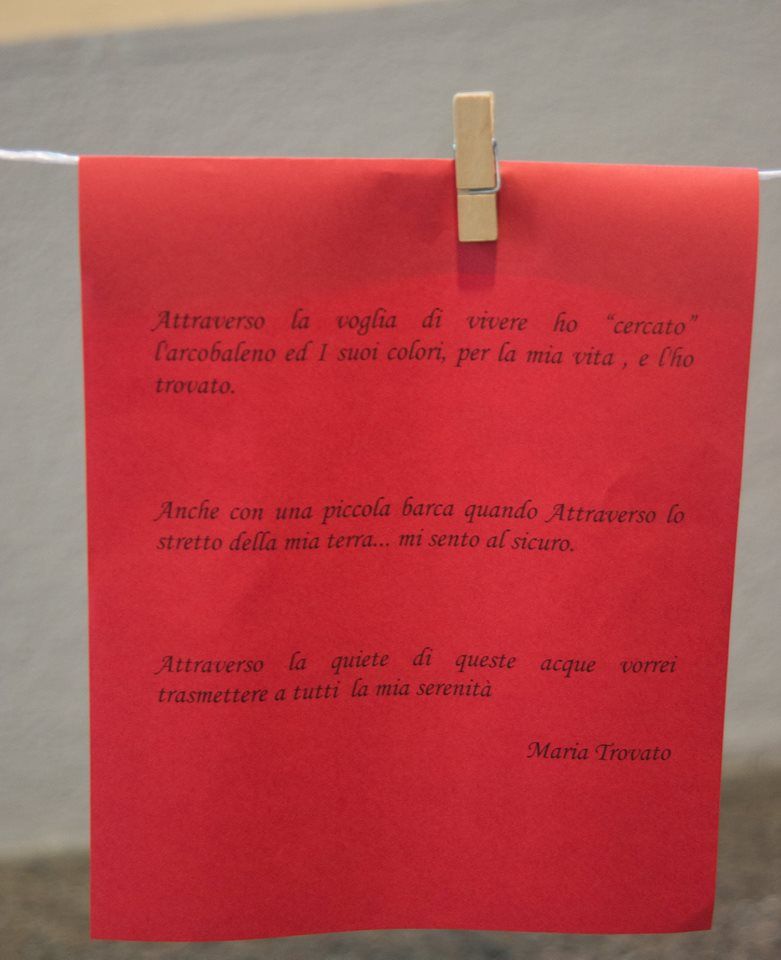 Attraverso la voglia di vivere ho “cercato”
l'arcobaleno ed I suoi colori, per la mia vita , e l'ho
trovato.
Anche con una piccola barca quando Attraverso lo
stretto della mia terra... mi sento al sicuro.
Attraverso la quiete di queste acque vorrei
trasmettere a tutti la mia serenità
Maria Trovato